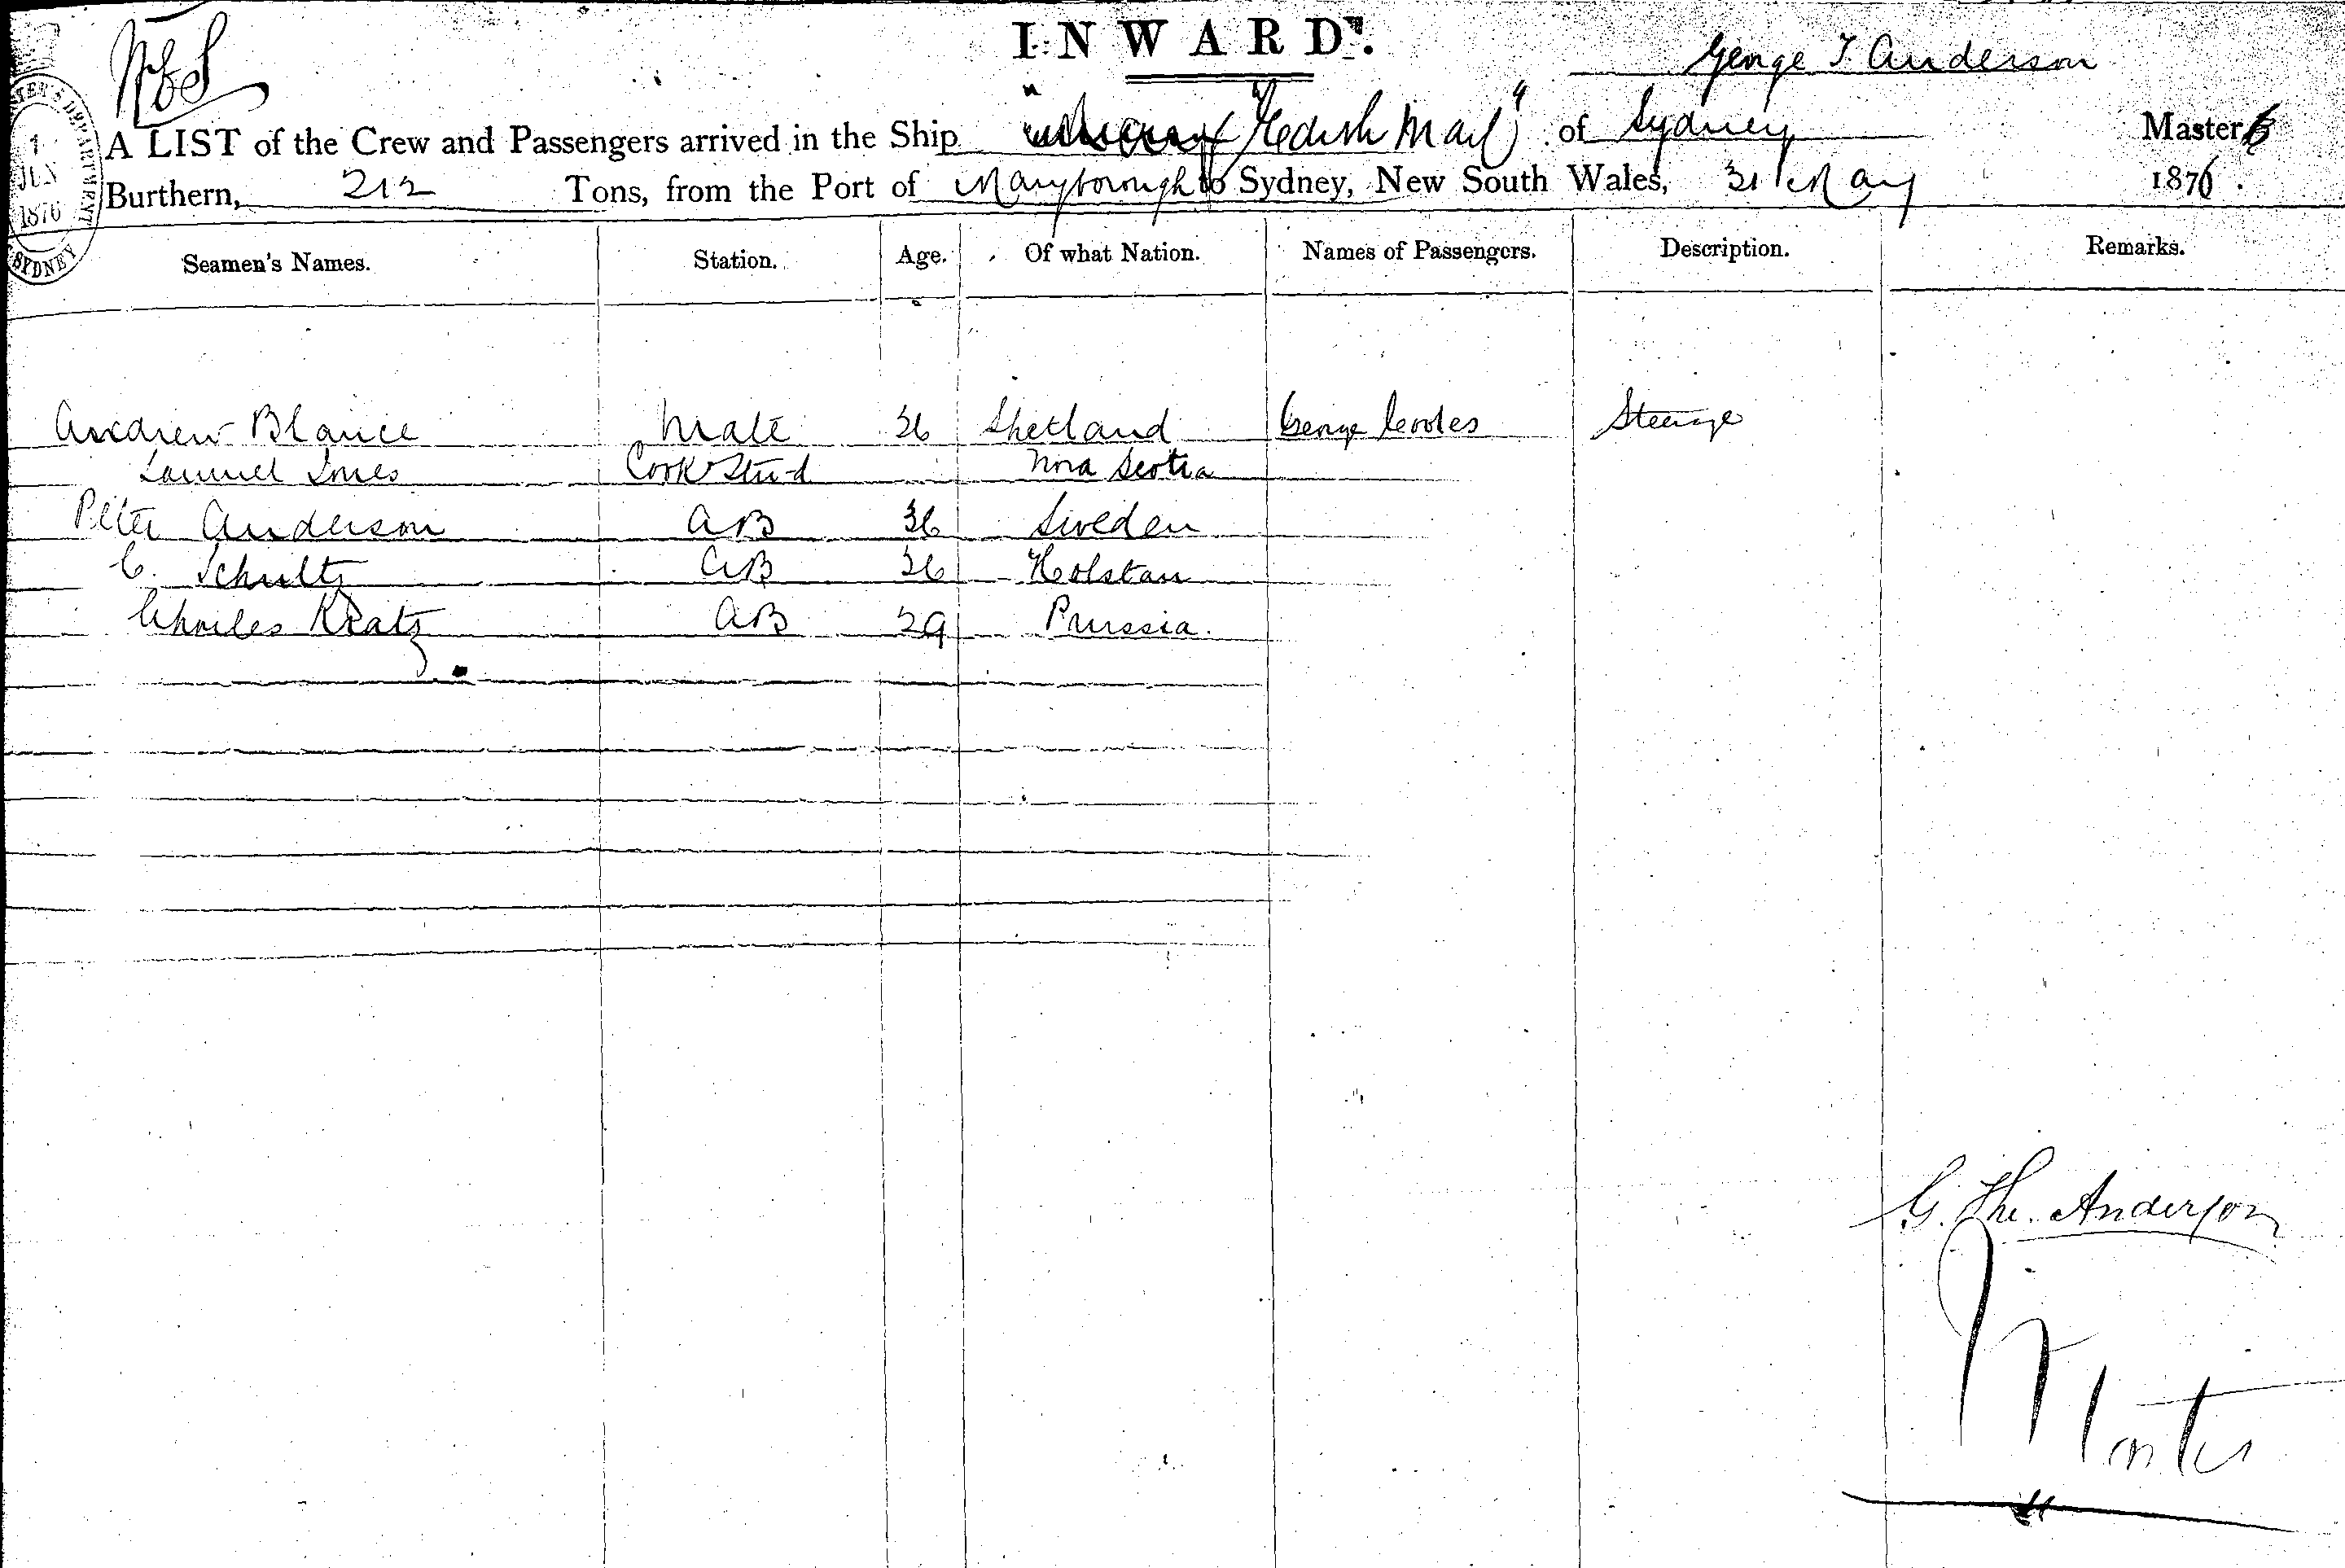 INWARD.
George T Anderson
A LIST of the Crew and Passengers arrived in the Ship "Hedish Mail" of Sydney Master
Burthern, 212 Tons, from the Port of Maryborough to Sydney, New South Wales, 31 May 1876.
1
JUN
1876
SYDNEY
Seamen's Names. Station. Age. Of what Nation. Names of Passengers. Description. Remarks.
Andrew Blance Mate 36 Shetland George Cooles Steerage
Samuel Jones Cook Stu-d Nova Scotia
Peter Anderson AB 36 Sweden
C. Schultz AB 26 Holstan
Charles Kratz AB 29 Prussia.
G. Tho. Anderson